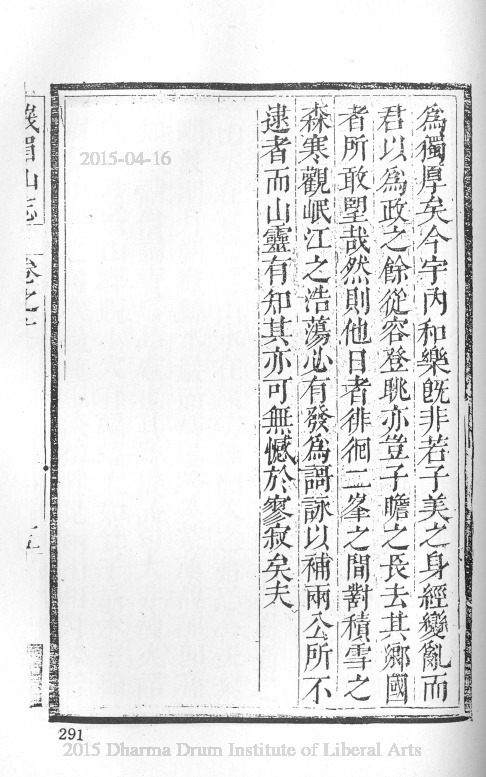 為獨厚矣今宇內和樂旣非若子美之身經變亂而
君以為政之餘從容登眺亦豈子瞻之長去其鄉國
者所敢望哉然則他日者徘徊二峯之間對積雪之
森寒觀岷江之浩蕩心有發為謌詠以補兩公所不
逮者而山靈有知其亦可無憾於寥寂矣夫
峩眉山志
卷之
2015-04-16
291
2015 Dharma Drum Institute of Liberal Arts